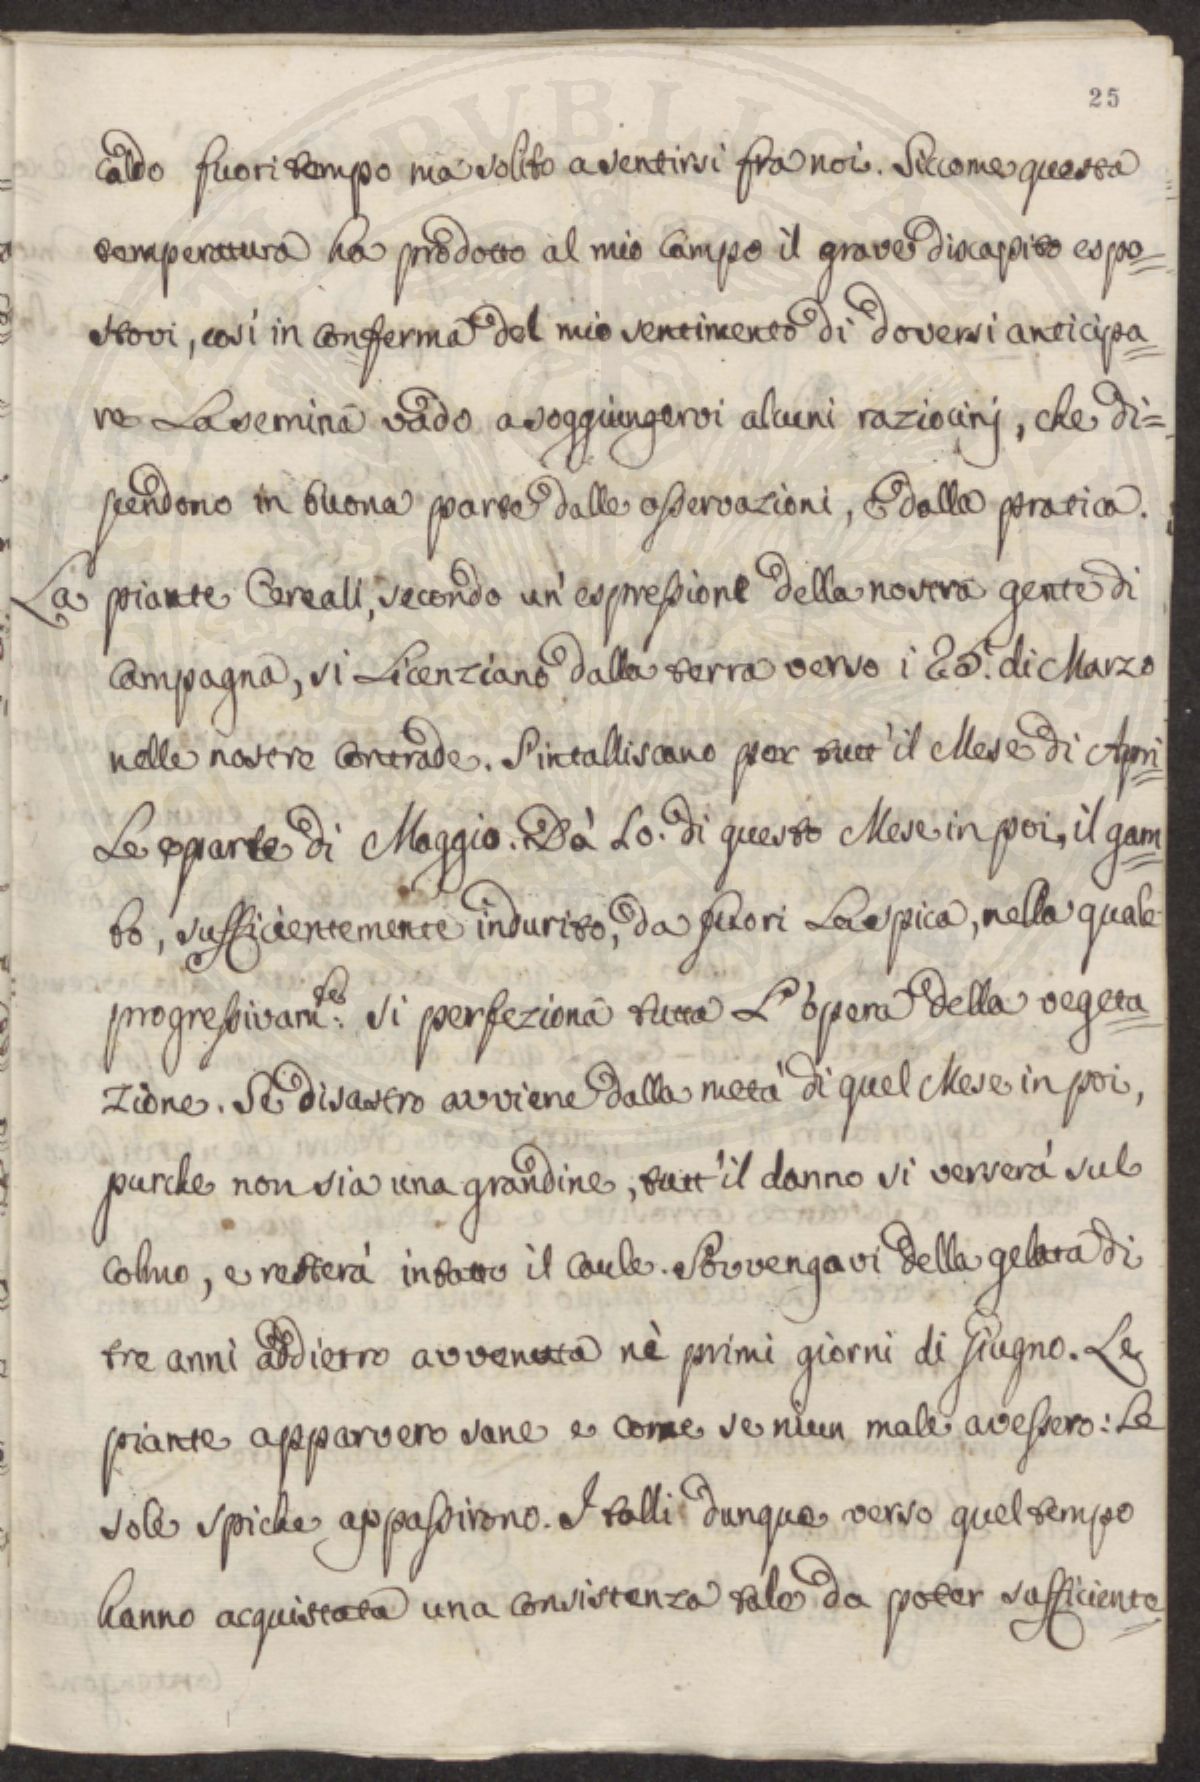 25
caldo fuori tempo ma solito a sentirsi fra noi. Siccome questa
temperattura ha prodotto al mio campo il grave discapito espo=
stovi, così in conferma del mio sentimento di doversi anticipa=
re La semina vado a soggiungervi alcuni raziocinj, che di=
scendono in buona parte dalle osservazioni, e dalla pratica.
La piante Cereali, secondo un' espressione della nostra gente di
campagna, si Licenziano dalla terra verso i 25. di Marzo
nelle nostre contrade. S'intalliscano per tutt' il Mese di Apri=
Le e parte di Maggio. Dà Lo. di questo Mese in poi, il gam=
bo, sufficientemente indurito, da fuori La spica, nella quale
progressivam.te si perfeziona tutta L' opera della vegeta=
zione. Se disastro avviene dalla metà di quel Mese in poi,
purche non sia una grandine, tutt' il danno si verserà sul
colmo, e resterà intatto il caule. Sovvengavi della gelata di
tre anni addietro avvenuta nè primi giorni di Giugno. Le
piante apparvero sane e come se niun male avessero: Le
sole spiche appassirono. I talli dunque verso quel tempo
hanno acquistata una consistenza tale da poter sufficiente=
UBLICA